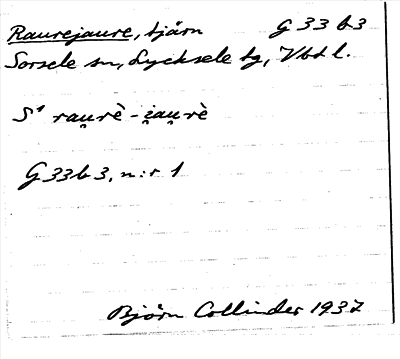 Raurejaure, tjärn G 33 b3
Sorsele sn, Lycksele tg, Vbt l.
S¹ rau̯rè-i̯au̯rè
G 33 b 3, n:r 1
Björn Collinder 1937